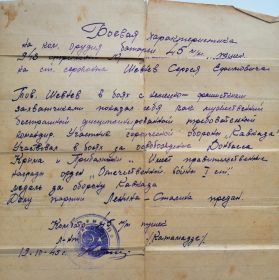 Боевая характеристика
на ком. орудия батареи 45 м/м пушек
на ст. сержанта Сергея Ефимовича
Тов. в боях с немецкими фашистскими
захватчиками показал себя как мужественный
бесстрашный дисциплинированный требовательный
командир. Участник героической обороны Кавказа
Участвовал в боях за освобождение Донбасса
Крыма и Прибалтики. Имеет правительственные
награды орден "Отечественной войны I ст"
медаль за оборону Кавказа
Делу партии Ленина-Сталина предан.
45 м/м пушек
19-10-45г.